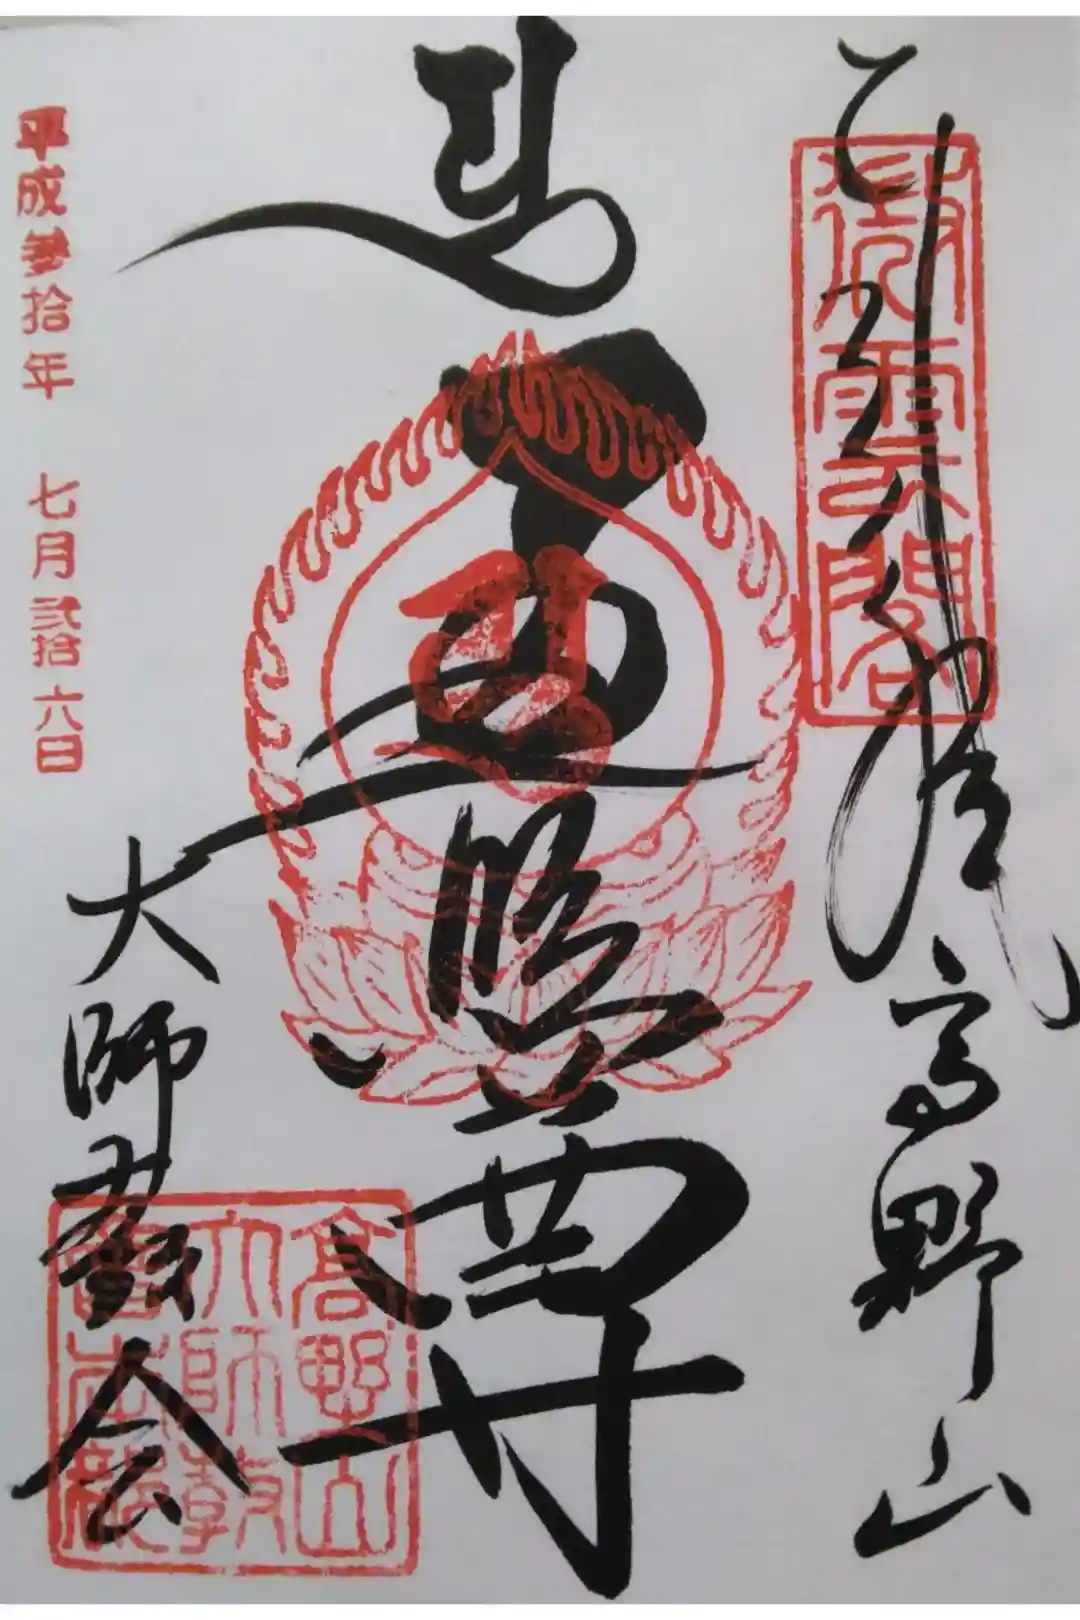 奉拝 高野山
遍照尊
大師教会
平成参拾年 七月弐拾六日
微雲閣
高野山
大師教
会本部